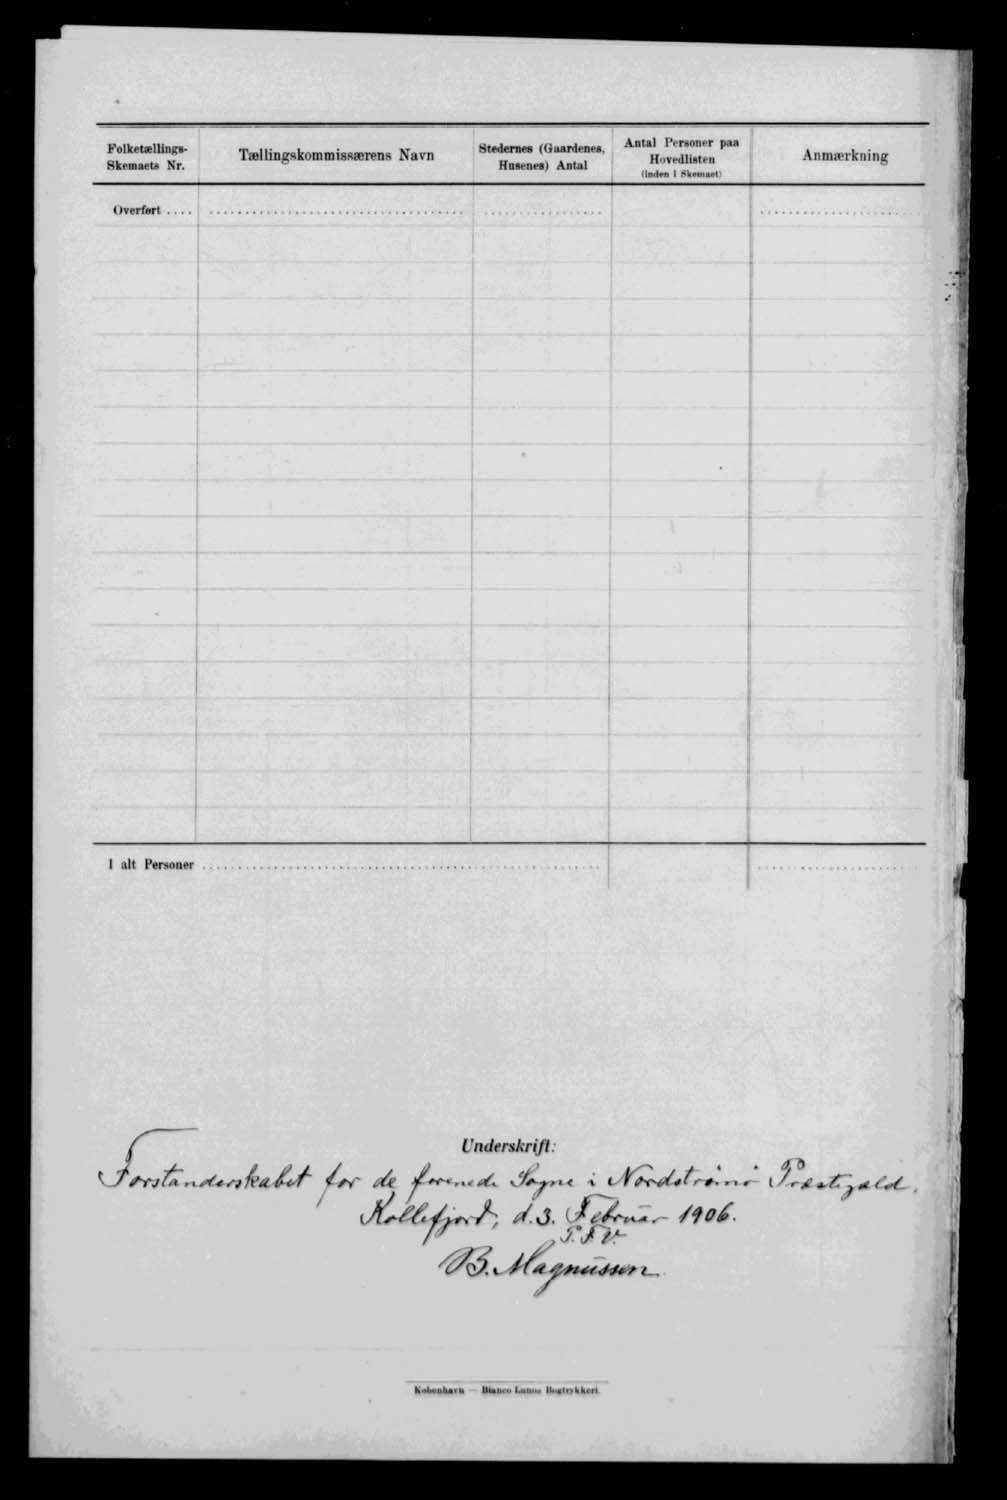 Folketællings-
Skemaets Nr.
Tællingskommissærens Navn
Stedernes (Gaardenes,
Husenes) Antal
Antal Personer paa
Hovedlisten
(inden i Skemaet)
Anmærkning
Overført ....
I alt Personer
Underskrift:
Forstanderskabet for de forenede Sogne i Nordstrømø Præstegæld.
Kollefjord, d. 3. Februar 1906.
P. F. V.
B. Magnussen
København — Bianco Lunos Bogtrykkeri.